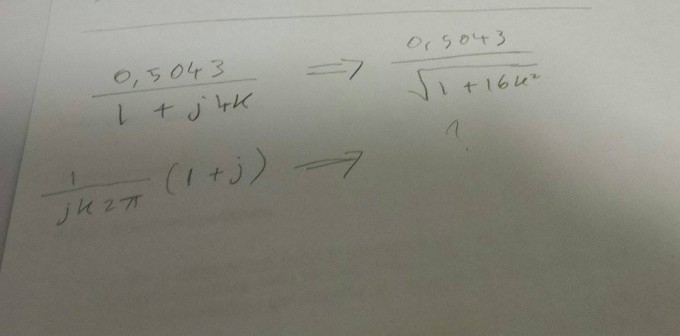 0,5043 / 1 + j4k ⇒ 0,5043 / √(1 + 16k²)
1 / jk2π (1 + j) ⇒ ?